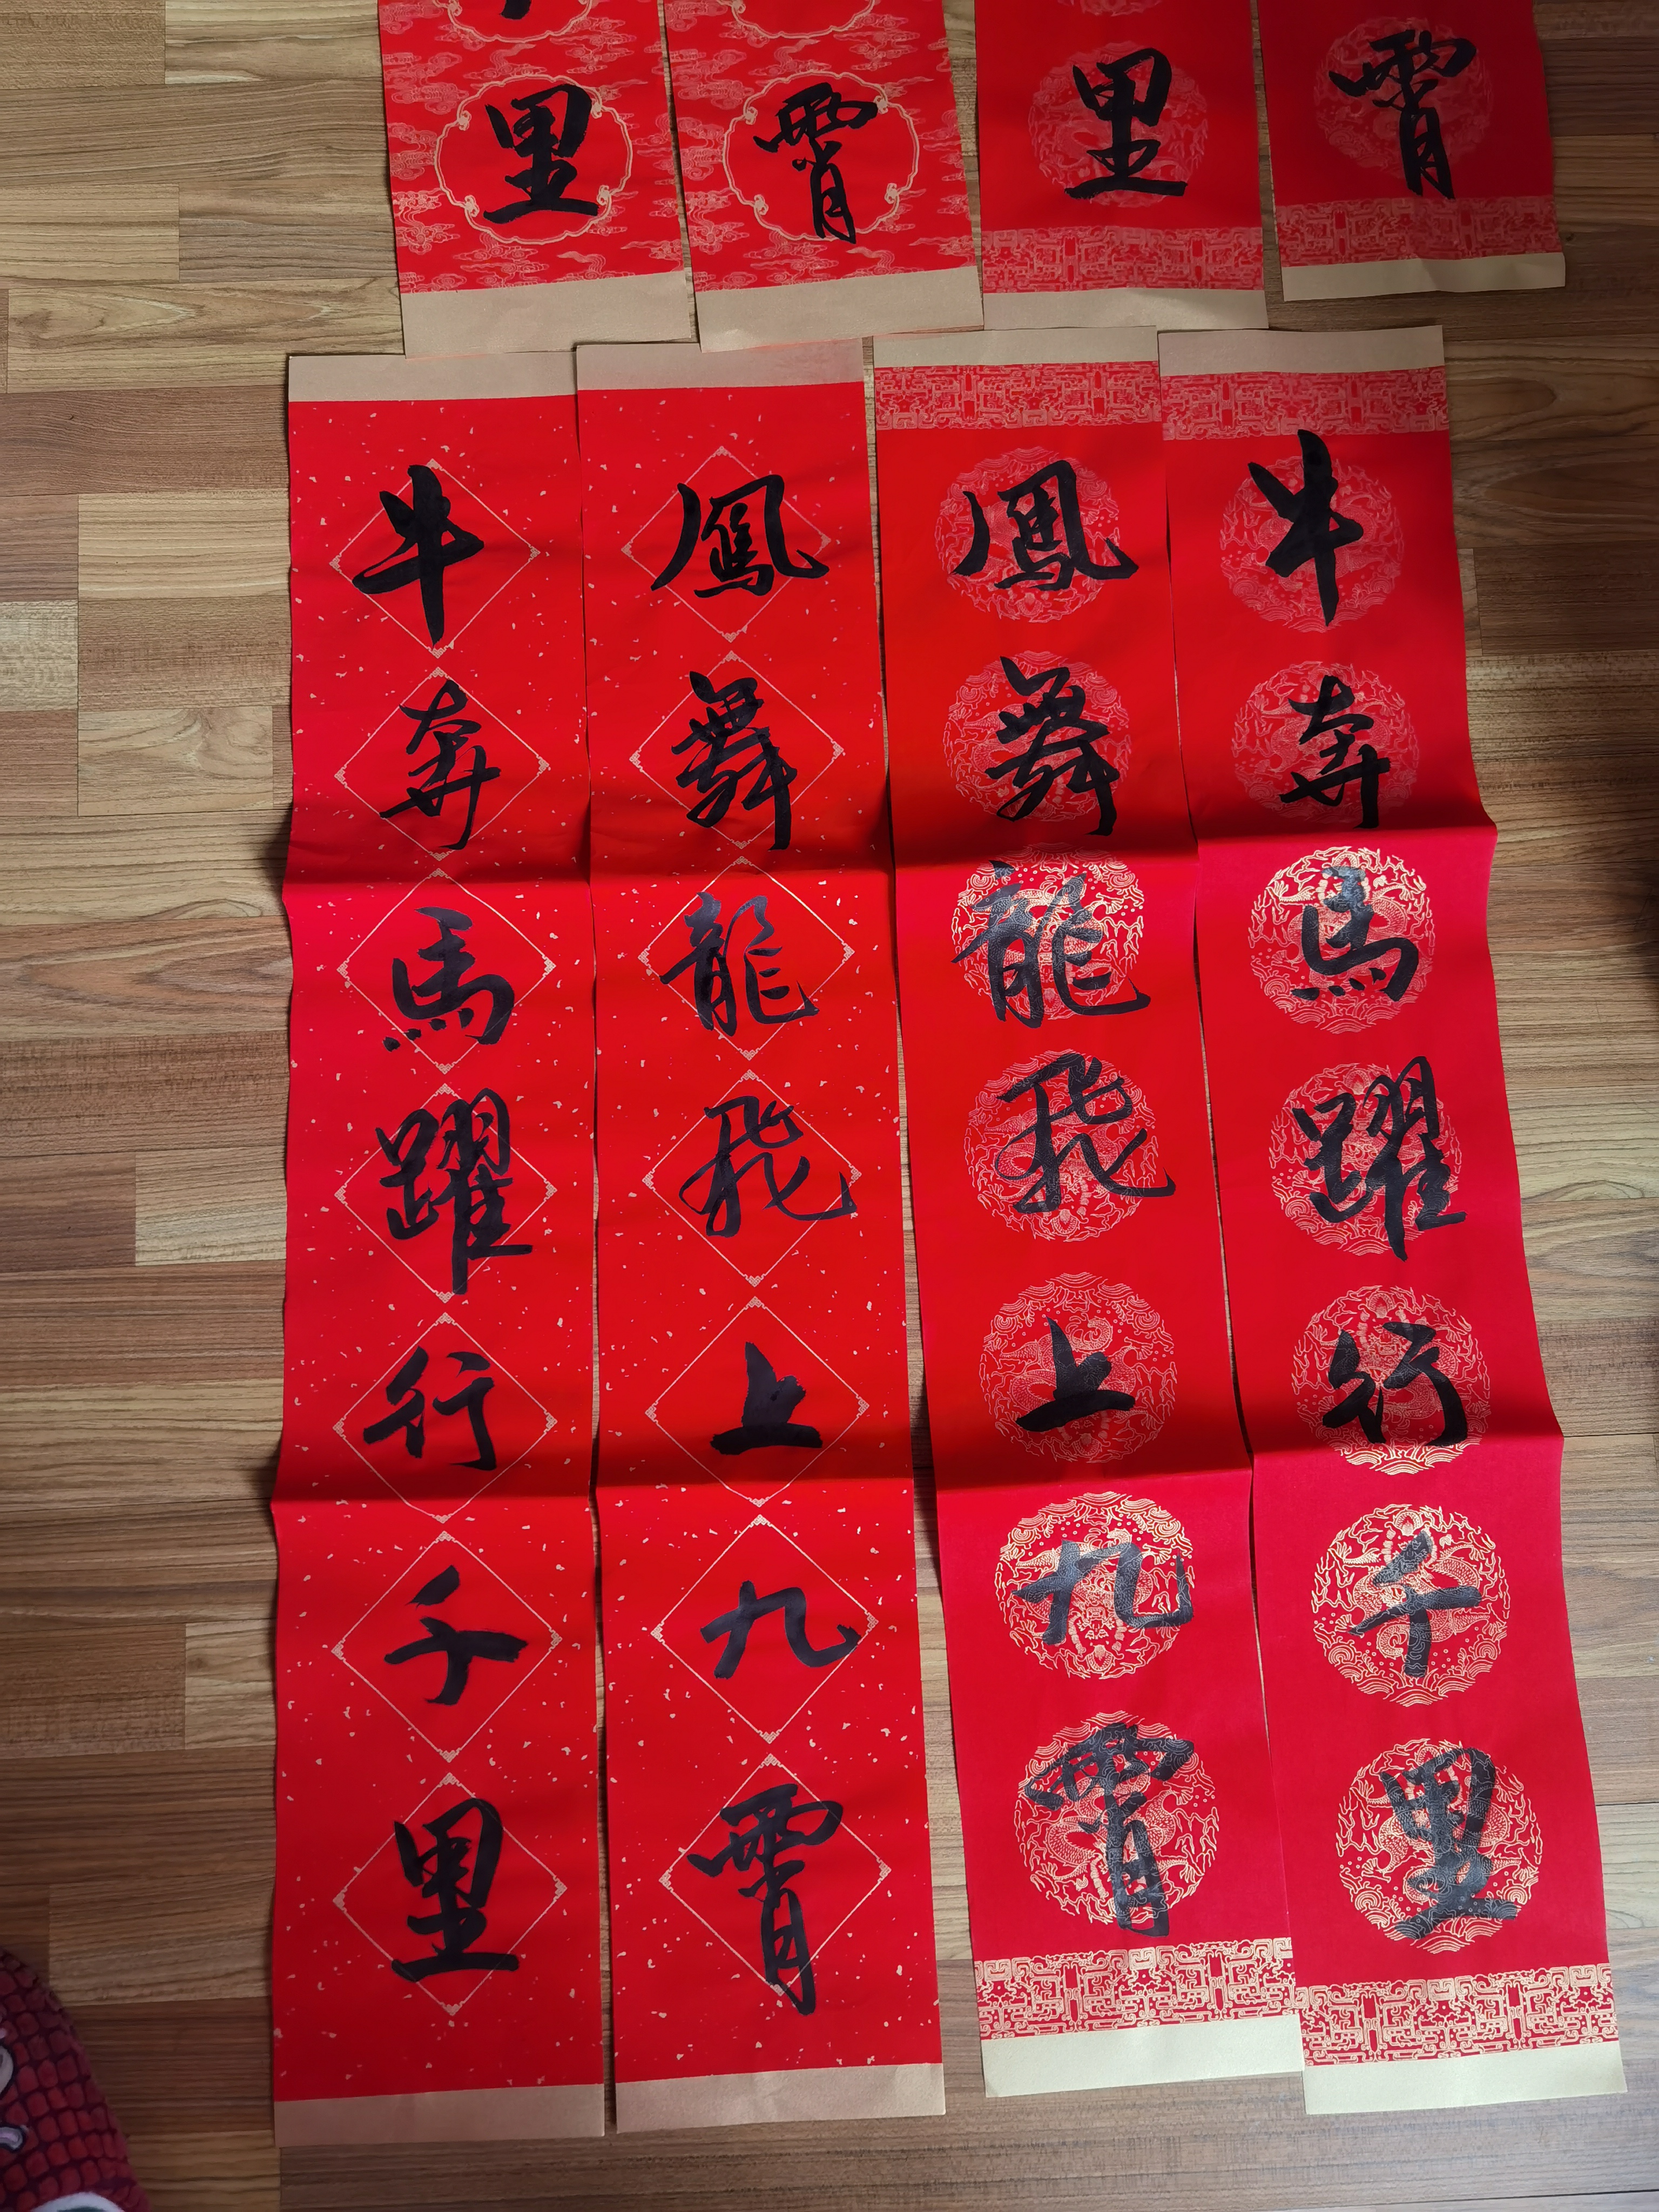 里
霄
里
霄
牛奔馬躍行千里
鳳舞龍飛上九霄
鳳舞龍飛上九霄
牛奔馬躍行千里